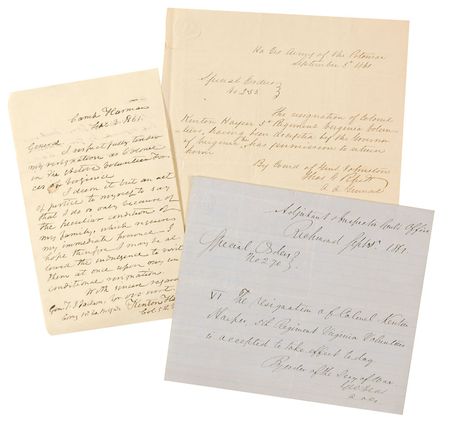 Camp Harman
Sep. 3. 1861.
General
I respectfully tender
my resignation as Colonel
in the Active Volunteer For-
ces of Virginia
I deem it but an act
of justice to myself to say
that I do so only because of
the peculiar condition of
my family, which requires
my immediate removal. I
hope therefore I may be al-
lowed the indulgence to
them at once upon my un-
conditional resignation.
With sincere regard
Kenton
Col 5th
Hd Qrs Army of the Potomac
September 5th 1861
Special Orders
No 255
The resignation of Colonel
Kenton Harper 5th Regiment Virginia Volun-
teers, having been accepted by the Governor
of Virginia, has permission to return
home.
By Comd of Genl Johnston
A. A. General
Adjutant & Inspector Genls Office
Richmond Sept 1861
Special Orders
No 270
VI The resignation of Colonel Kenton
Harper, 5th Regiment Virginia Volunteers
is accepted to take effect to day
By order of the Secy of War